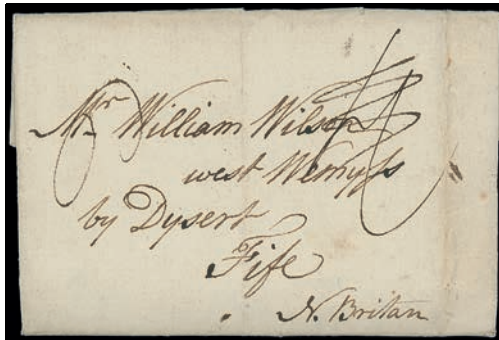 Mr William Wilson
west Wemyss
by Dysert
Fife
N. Britan